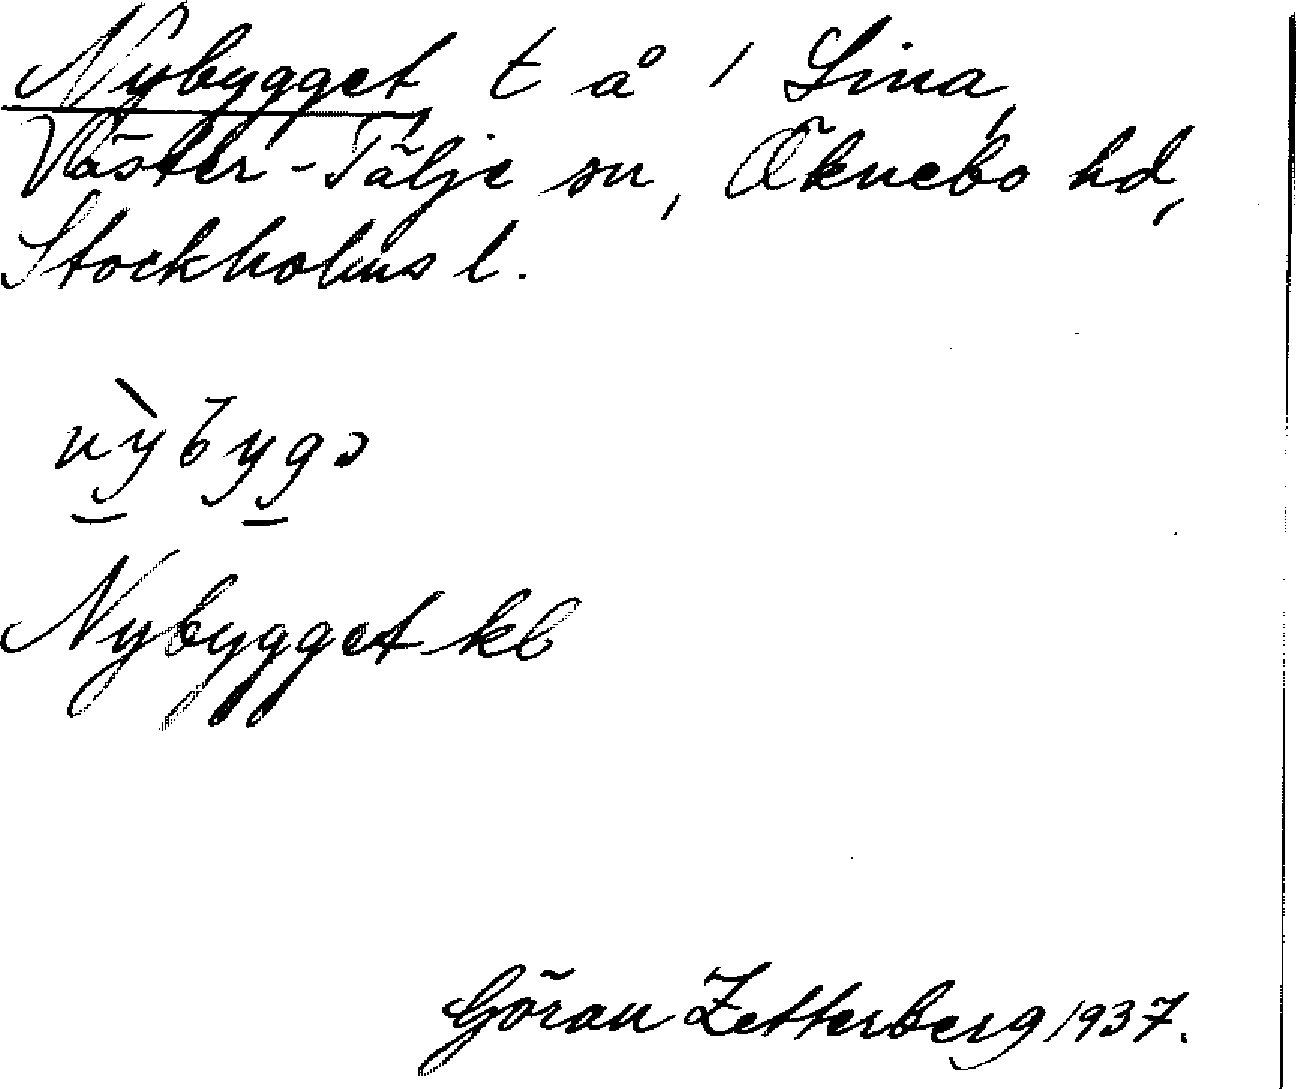 Nybygget, t å 1 Lina,
Väster-Tälje sn, Öknebo hd,
Stockholms l.
nỳbygə
Nybygget kb
Göran Zetterberg 1937.